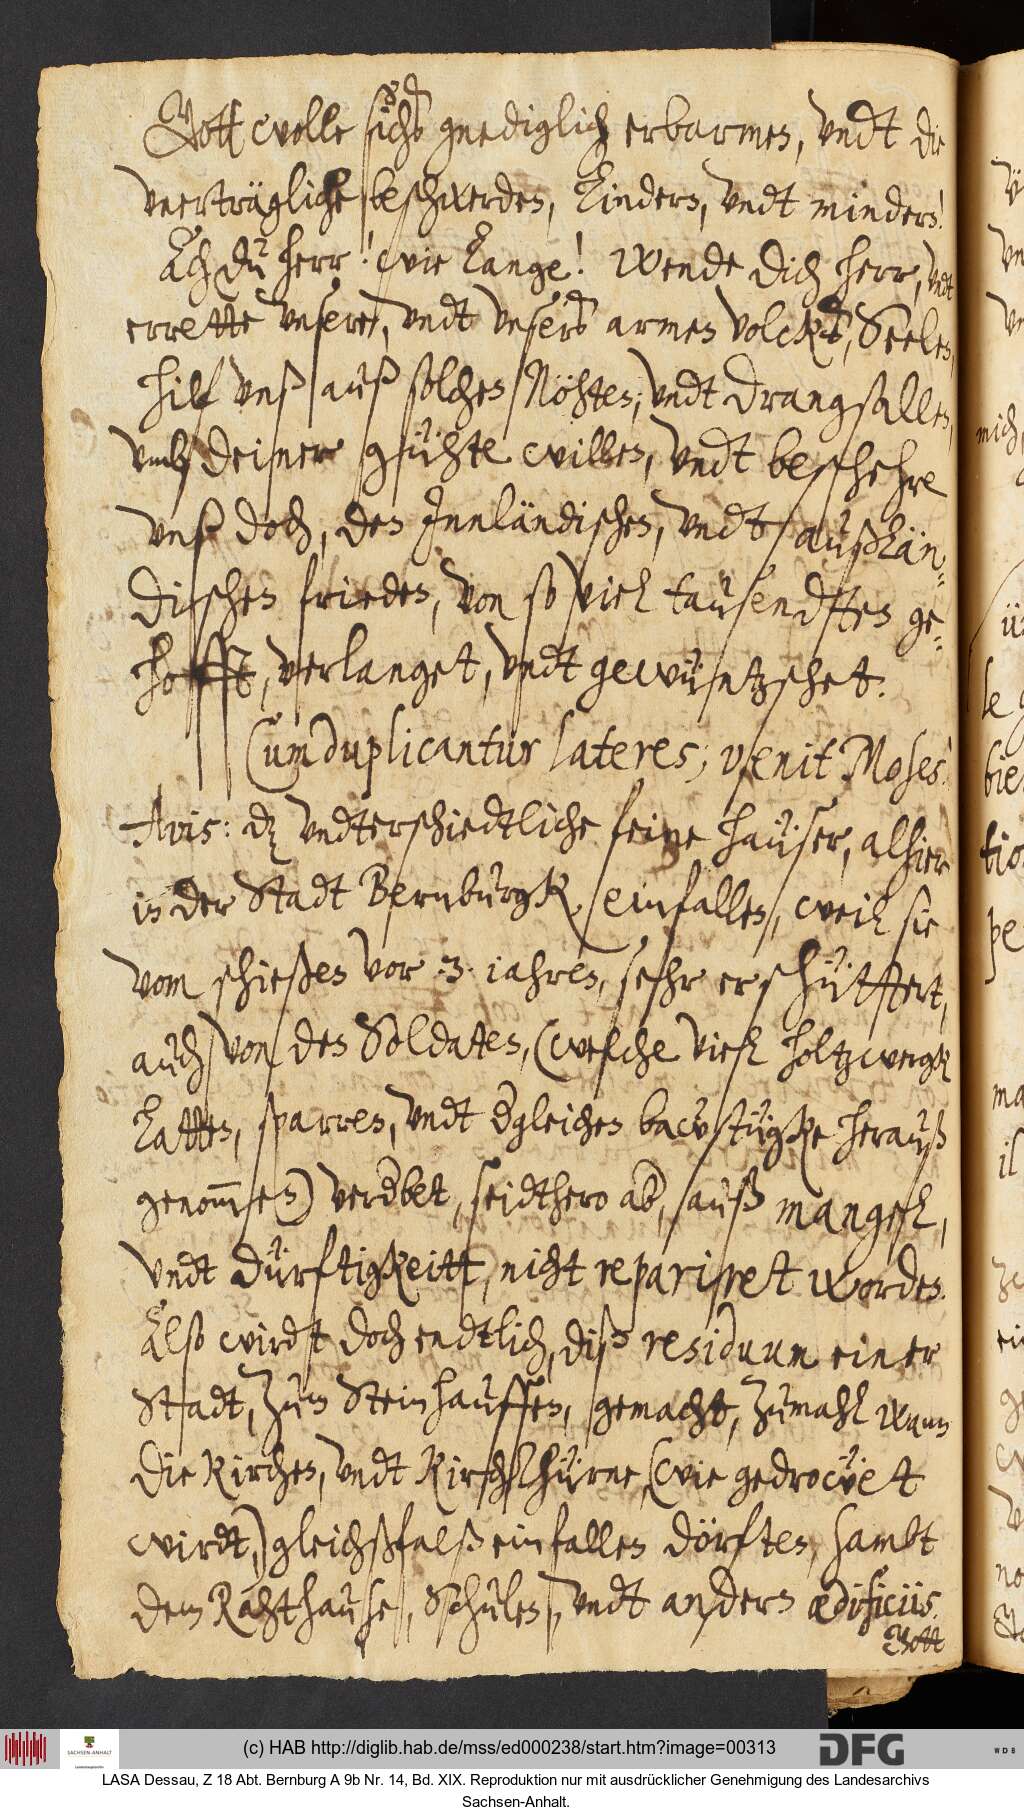 Gott wolle sichs gnediglich erbarmen, vndt die
vnerträgliche beschwerden, lindern, vndt mindern!
Ach du herr! wie lange! Wende dich herr, vndt
errette vnsere, vndt vnsers armen volcks, Seelen,
hilf vnß auß solchen Nöhten, vndt drangsallen,
vmb deiner gühte willen, vndt beschehre
vnß doch, den Innländischen, vndt außlän-
dischen frieden, von so viel tausendten ge-
hofft, verlanget, vndt gewüntzschet.
Cum duplicantur lateres; venit Moses!
Avis: dz vndterschiedtliche feine haüser, alhier
in der Stadt Bernburgk, einfallen, weil sie
vom schießen vor .3. iahren, sehr erschüttert,
auch von den Soldaten, (welche viel holtzwergk
Latten, sparren, vndt dergleichen baw stügke herauß
genommen) verderbet, seidthero aber, auß mangel,
vndt dürftigkeitt, nicht repariret worden.
Also wirdt doch endtlich, diß residuum einer
Stadt, zum Steinhauffen, gemacht, zumahl wann
die Kirchen, vndt Kirchthürne, (wie gedrowet
wirdt,) gleichßfalß einfallen dörften, sambt
dem Rahthause, Schulen, vndt andern ædificiis.
Gott
mich
le
bie
tio
pe
ma
il
(c) HAB http://diglib.hab.de/mss/ed000238/start.htm?image=00313
SACHSEN-ANHALT
DFG
WDB
LASA Dessau, Z 18 Abt. Bernburg A 9b Nr. 14, Bd. XIX. Reproduktion nur mit ausdrücklicher Genehmigung des Landesarchivs
Sachsen-Anhalt.